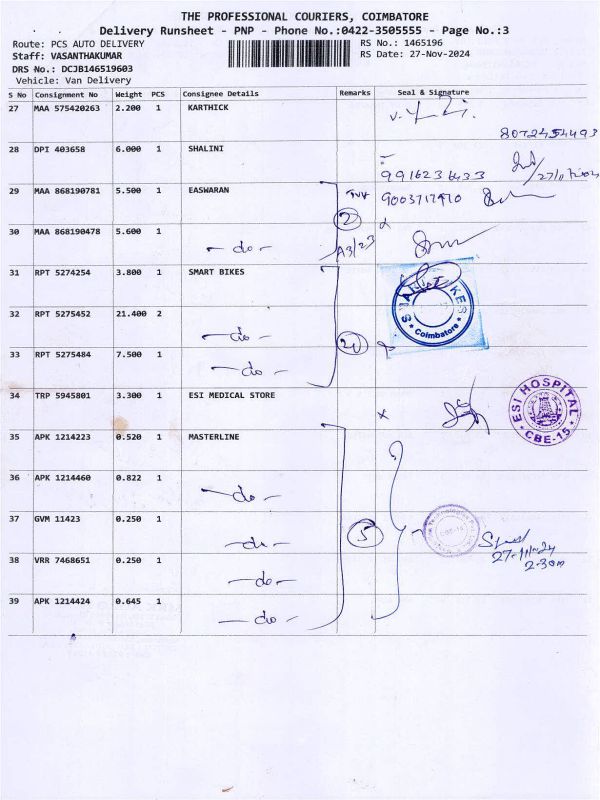 THE PROFESSIONAL COURIERS, COIMBATORE
Delivery Runsheet - PNP - Phone No.:0422-3505555 - Page No.:3
Route: PCS AUTO DELIVERY RS No.: 1465196
Staff: VASANTHAKUMAR RS Date: 27-Nov-2024
DRS No.: DCJB146519603
Vehicle: Van Delivery
S No Consignment No Weight PCS Consignee Details Remarks Seal & Signature
27 MAA 575420263 2.200 1 KARTHICK
8072454493
28 DPI 403658 6.000 1 SHALINI
29 MAA 868190781 5.500 1 EASWARAN 9003717970
2
30 MAA 868190478 5.600 1 - do - A3/23
31 RPT 5274254 3.800 1 SMART BIKES
32 RPT 5275452 21.400 2 - do -
Coimbatore
33 RPT 5275484 7.500 1 - do -
34 TRP 5945801 3.300 1 ESI MEDICAL STORE x
ESI HOSPITAL
CBE-15
35 APK 1214223 0.520 1 MASTERLINE
36 APK 1214460 0.822 1 - do -
37 GVM 11423 0.250 1 - do - 5
CBE-15
27-11-24
2-30
38 VRR 7468651 0.250 1 - do -
39 APK 1214424 0.645 1 - do -